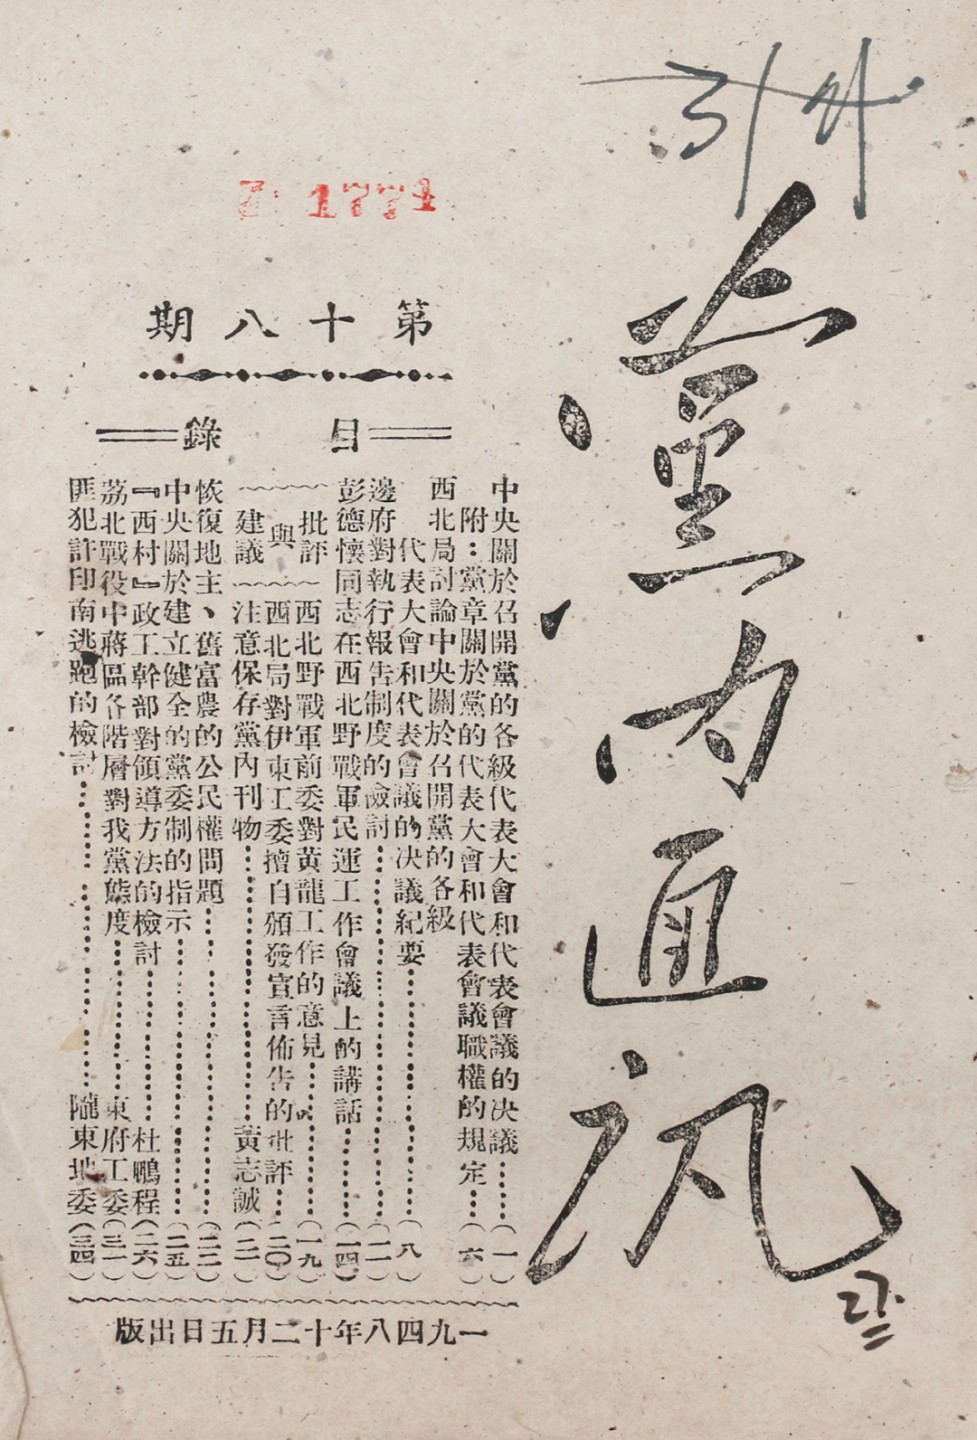 黨内通訊
Z 1774
第十八期
目錄
中央關於召開黨的各級代表大會和代表會議的決議……(一)
附：黨章關於黨的代表大會和代表會議職權的規定……(六)
西北局討論中央關於召開黨的各級
代表大會和代表會議的決議紀要……(八)
邊府對執行報告制度的檢討……(一一)
彭德懷同志在西北野戰軍民運工作會議上的講話……(一四)
批評
與
建議
西北野戰軍前委對黃龍工作的意見……(一九)
西北局對伊東工委擅自頒發宣言佈告的批評……(二〇)
注意保存黨內刊物……黃志誠(二一)
恢復地主、舊富農的公民權問題……(二二)
中央關於建立健全的黨委制的指示……(二五)
『西村』政工幹部對領導方法的檢討……杜鵬程(二六)
荔北戰役中蔣區各階層對我黨態度……東府工委(三一)
匪犯許印南逃跑的檢討……隴東地委(三四)
一九四八年十二月五日出版